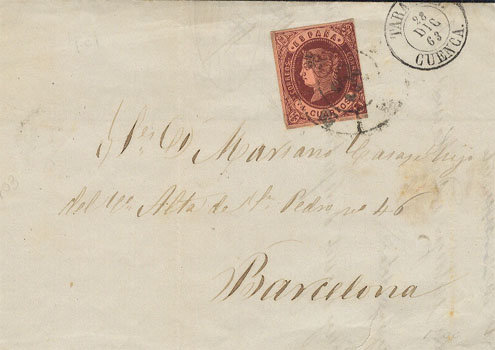 ESPAÑA
CORREOS
4 CUARTOS
TARA
28
DIC
63
CUENCA.
Sres D. Mariano Casas e hijo
Alta de Sn. Pedro nº 46
Barcelona